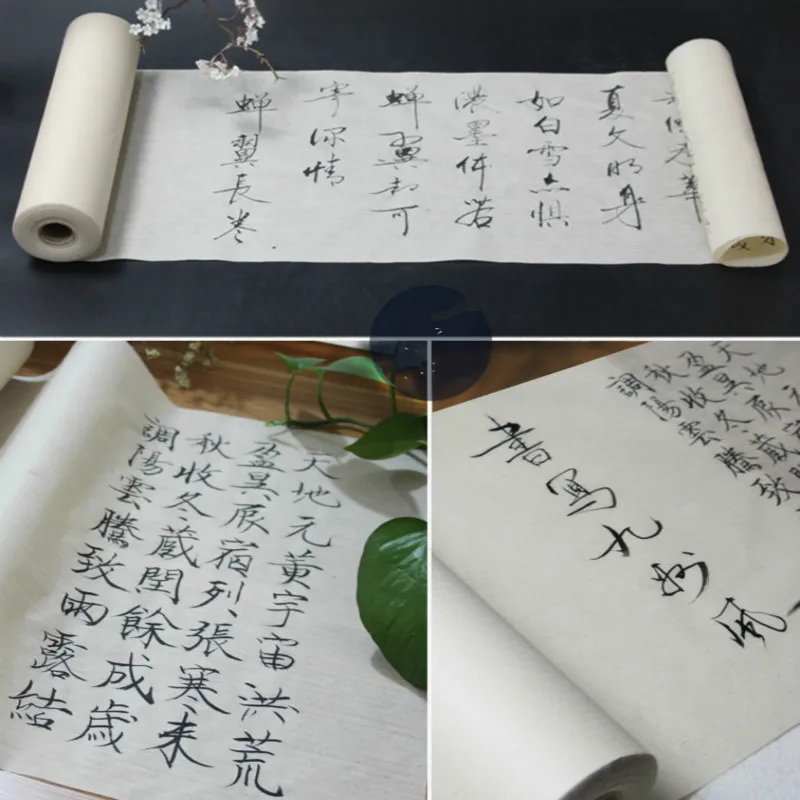 如白雪点惧
濃墨体若
蝉翼却可
寄深情
蝉翼長卷
天地元黄宇宙洪荒
盈昃辰宿列張寒来
秋收冬藏閏餘成歲
調陽雲騰致雨露結
天地元
盈昃辰
秋收冬藏
調陽雲騰致
書写九妙風